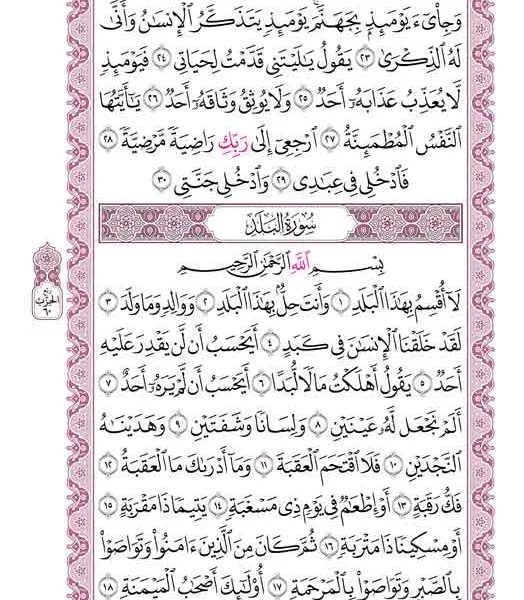 وَجِاْىٓءَ يَوْمَئِذٍۭ بِجَهَنَّمَ ۚ يَوْمَئِذٍ يَتَذَكَّرُ ٱلْإِنسَٰنُ وَأَنَّىٰ
لَهُ ٱلذِّكْرَىٰ ٢٣ يَقُولُ يَٰلَيْتَنِى قَدَّمْتُ لِحَيَاتِى ٢٤ فَيَوْمَئِذٍ
لَّا يُعَذِّبُ عَذَابَهُۥٓ أَحَدٌ ٢٥ وَلَا يُوثِقُ وَثَاقَهُۥٓ أَحَدٌ ٢٦ يَٰٓأَيَّتُهَا
ٱلنَّفْسُ ٱلْمُطْمَئِنَّةُ ٢٧ ٱرْجِعِىٓ إِلَىٰ رَبِّكِ رَاضِيَةً مَّرْضِيَّةً ٢٨
فَٱدْخُلِى فِى عِبَٰدِى ٢٩ وَٱدْخُلِى جَنَّتِى ٣٠
سُورَةُ ٱلْبَلَدِ
بِسْمِ ٱللَّهِ ٱلرَّحْمَٰنِ ٱلرَّحِيمِ
لَآ أُقْسِمُ بِهَٰذَا ٱلْبَلَدِ ١ وَأَنتَ حِلٌّۢ بِهَٰذَا ٱلْبَلَدِ ٢ وَوَالِدٍ وَمَا وَلَدَ ٣
لَقَدْ خَلَقْنَا ٱلْإِنسَٰنَ فِى كَبَدٍ ٤ أَيَحْسَبُ أَن لَّن يَقْدِرَ عَلَيْهِ
أَحَدٌ ٥ يَقُولُ أَهْلَكْتُ مَالًا لُّبَدًا ٦ أَيَحْسَبُ أَن لَّمْ يَرَهُۥٓ أَحَدٌ ٧
أَلَمْ نَجْعَل لَّهُۥ عَيْنَيْنِ ٨ وَلِسَانًا وَشَفَتَيْنِ ٩ وَهَدَيْنَٰهُ
ٱلنَّجْدَيْنِ ١٠ فَلَا ٱقْتَحَمَ ٱلْعَقَبَةَ ١١ وَمَآ أَدْرَىٰكَ مَا ٱلْعَقَبَةُ ١٢
فَكُّ رَقَبَةٍ ١٣ أَوْ إِطْعَٰمٌ فِى يَوْمٍ ذِى مَسْغَبَةٍ ١٤ يَتِيمًا ذَا مَقْرَبَةٍ ١٥
أَوْ مِسْكِينًا ذَا مَتْرَبَةٍ ١٦ ثُمَّ كَانَ مِنَ ٱلَّذِينَ ءَامَنُوا۟ وَتَوَاصَوْا۟
بِٱلصَّبْرِ وَتَوَاصَوْا۟ بِٱلْمَرْحَمَةِ ١٧ أُو۟لَٰٓئِكَ أَصْحَٰبُ ٱلْمَيْمَنَةِ ١٨
ربع
الحزب
٦٠